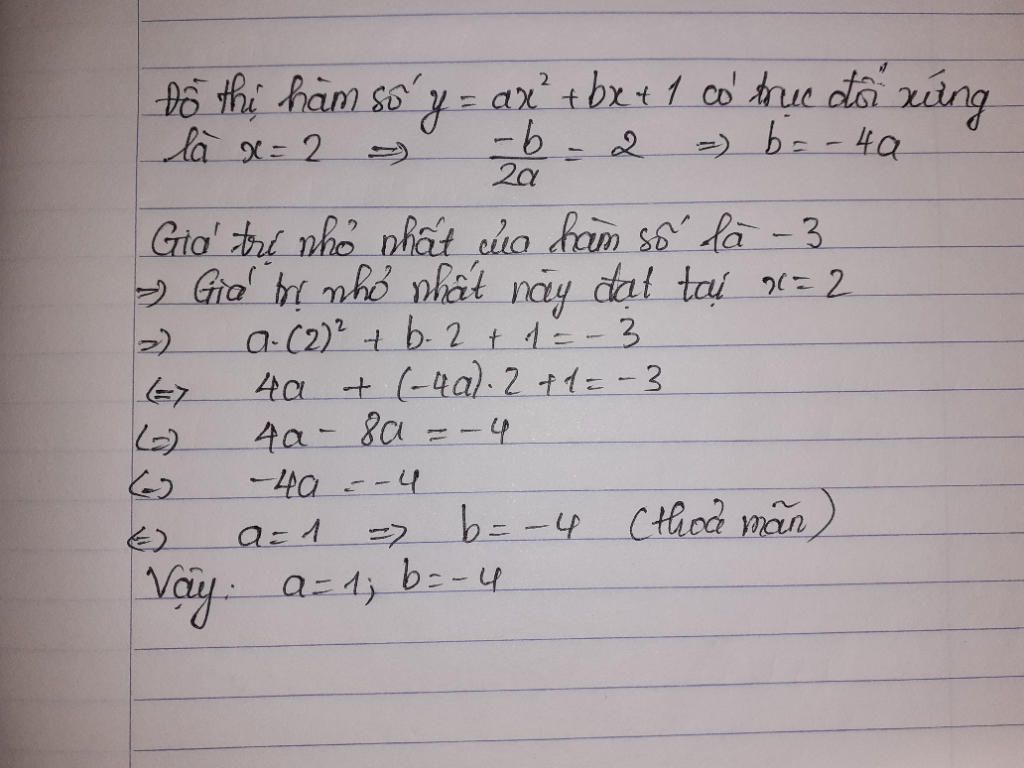 Đồ thị hàm số y = ax² + bx + 1 có trục đối xứng
là x = 2 => -b/2a = 2 => b = -4a
Giá trị nhỏ nhất của hàm số là -3
=> Giá trị nhỏ nhất này đạt tại x = 2
=> a.(2)² + b.2 + 1 = -3
<=> 4a + (-4a).2 + 1 = -3
<=> 4a - 8a = -4
<=> -4a = -4
<=> a = 1 => b = -4 (thoả mãn)
Vậy: a = 1; b = -4